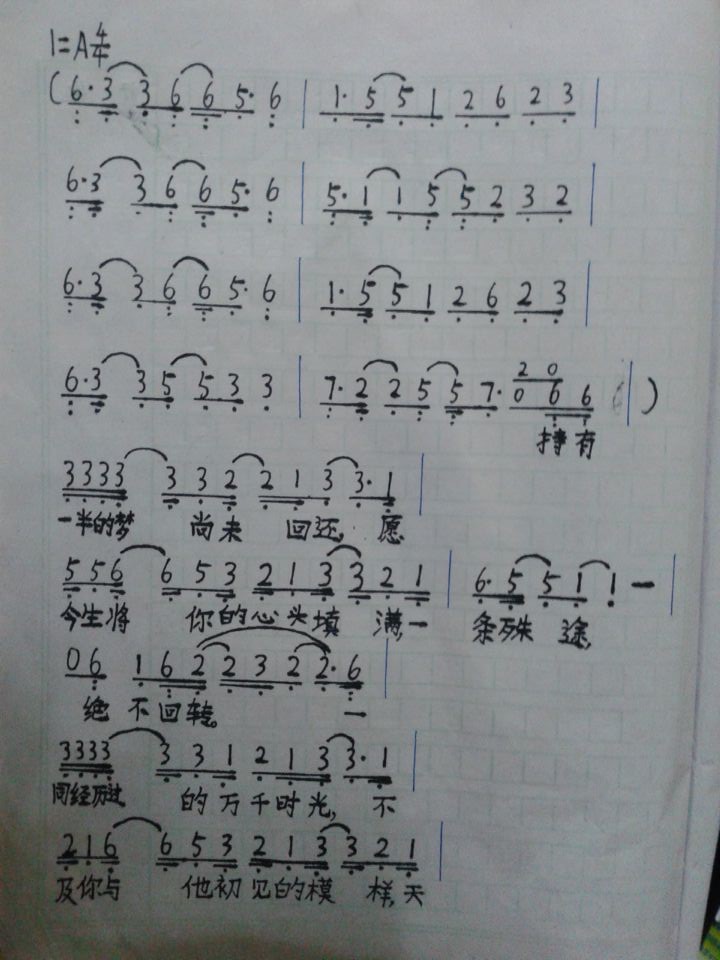 1=A 4/4
(6·3 3 6 6 5· 6 | 1·5 5 1 2 6 2 3 |
6·3 3 6 6 5· 6 | 5·1 1 5 5 2 3 2 |
6·3 3 6 6 5· 6 | 1·5 5 1 2 6 2 3 |
2 0
6·3 3 5 5 3 3 | 7·2 2 5 5 7· 0 6 6 | )
持有
3333 3 3 2 2 1 3 3·1 |
一半的梦 尚未 回还, 愿
5 5 6 6 5 3 2 1 3 3 2 1 | 6·5 5 1 1 - |
今生将 你的心头填 满,一 条殊 途,
0 6 1 6 2 2 3 2 2·6 |
绝 不回转。 一
3333 3 3 1 2 1 3 3·1 |
同经历过 的万千时光, 不
2 1 6 6 5 3 2 1 3 3 2 1 |
及你与 他初见的模 样,天